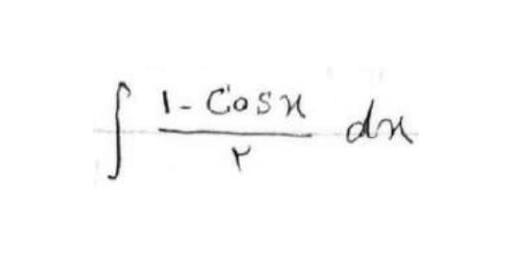 ∫ (۱ - Cosx)/۲ dx